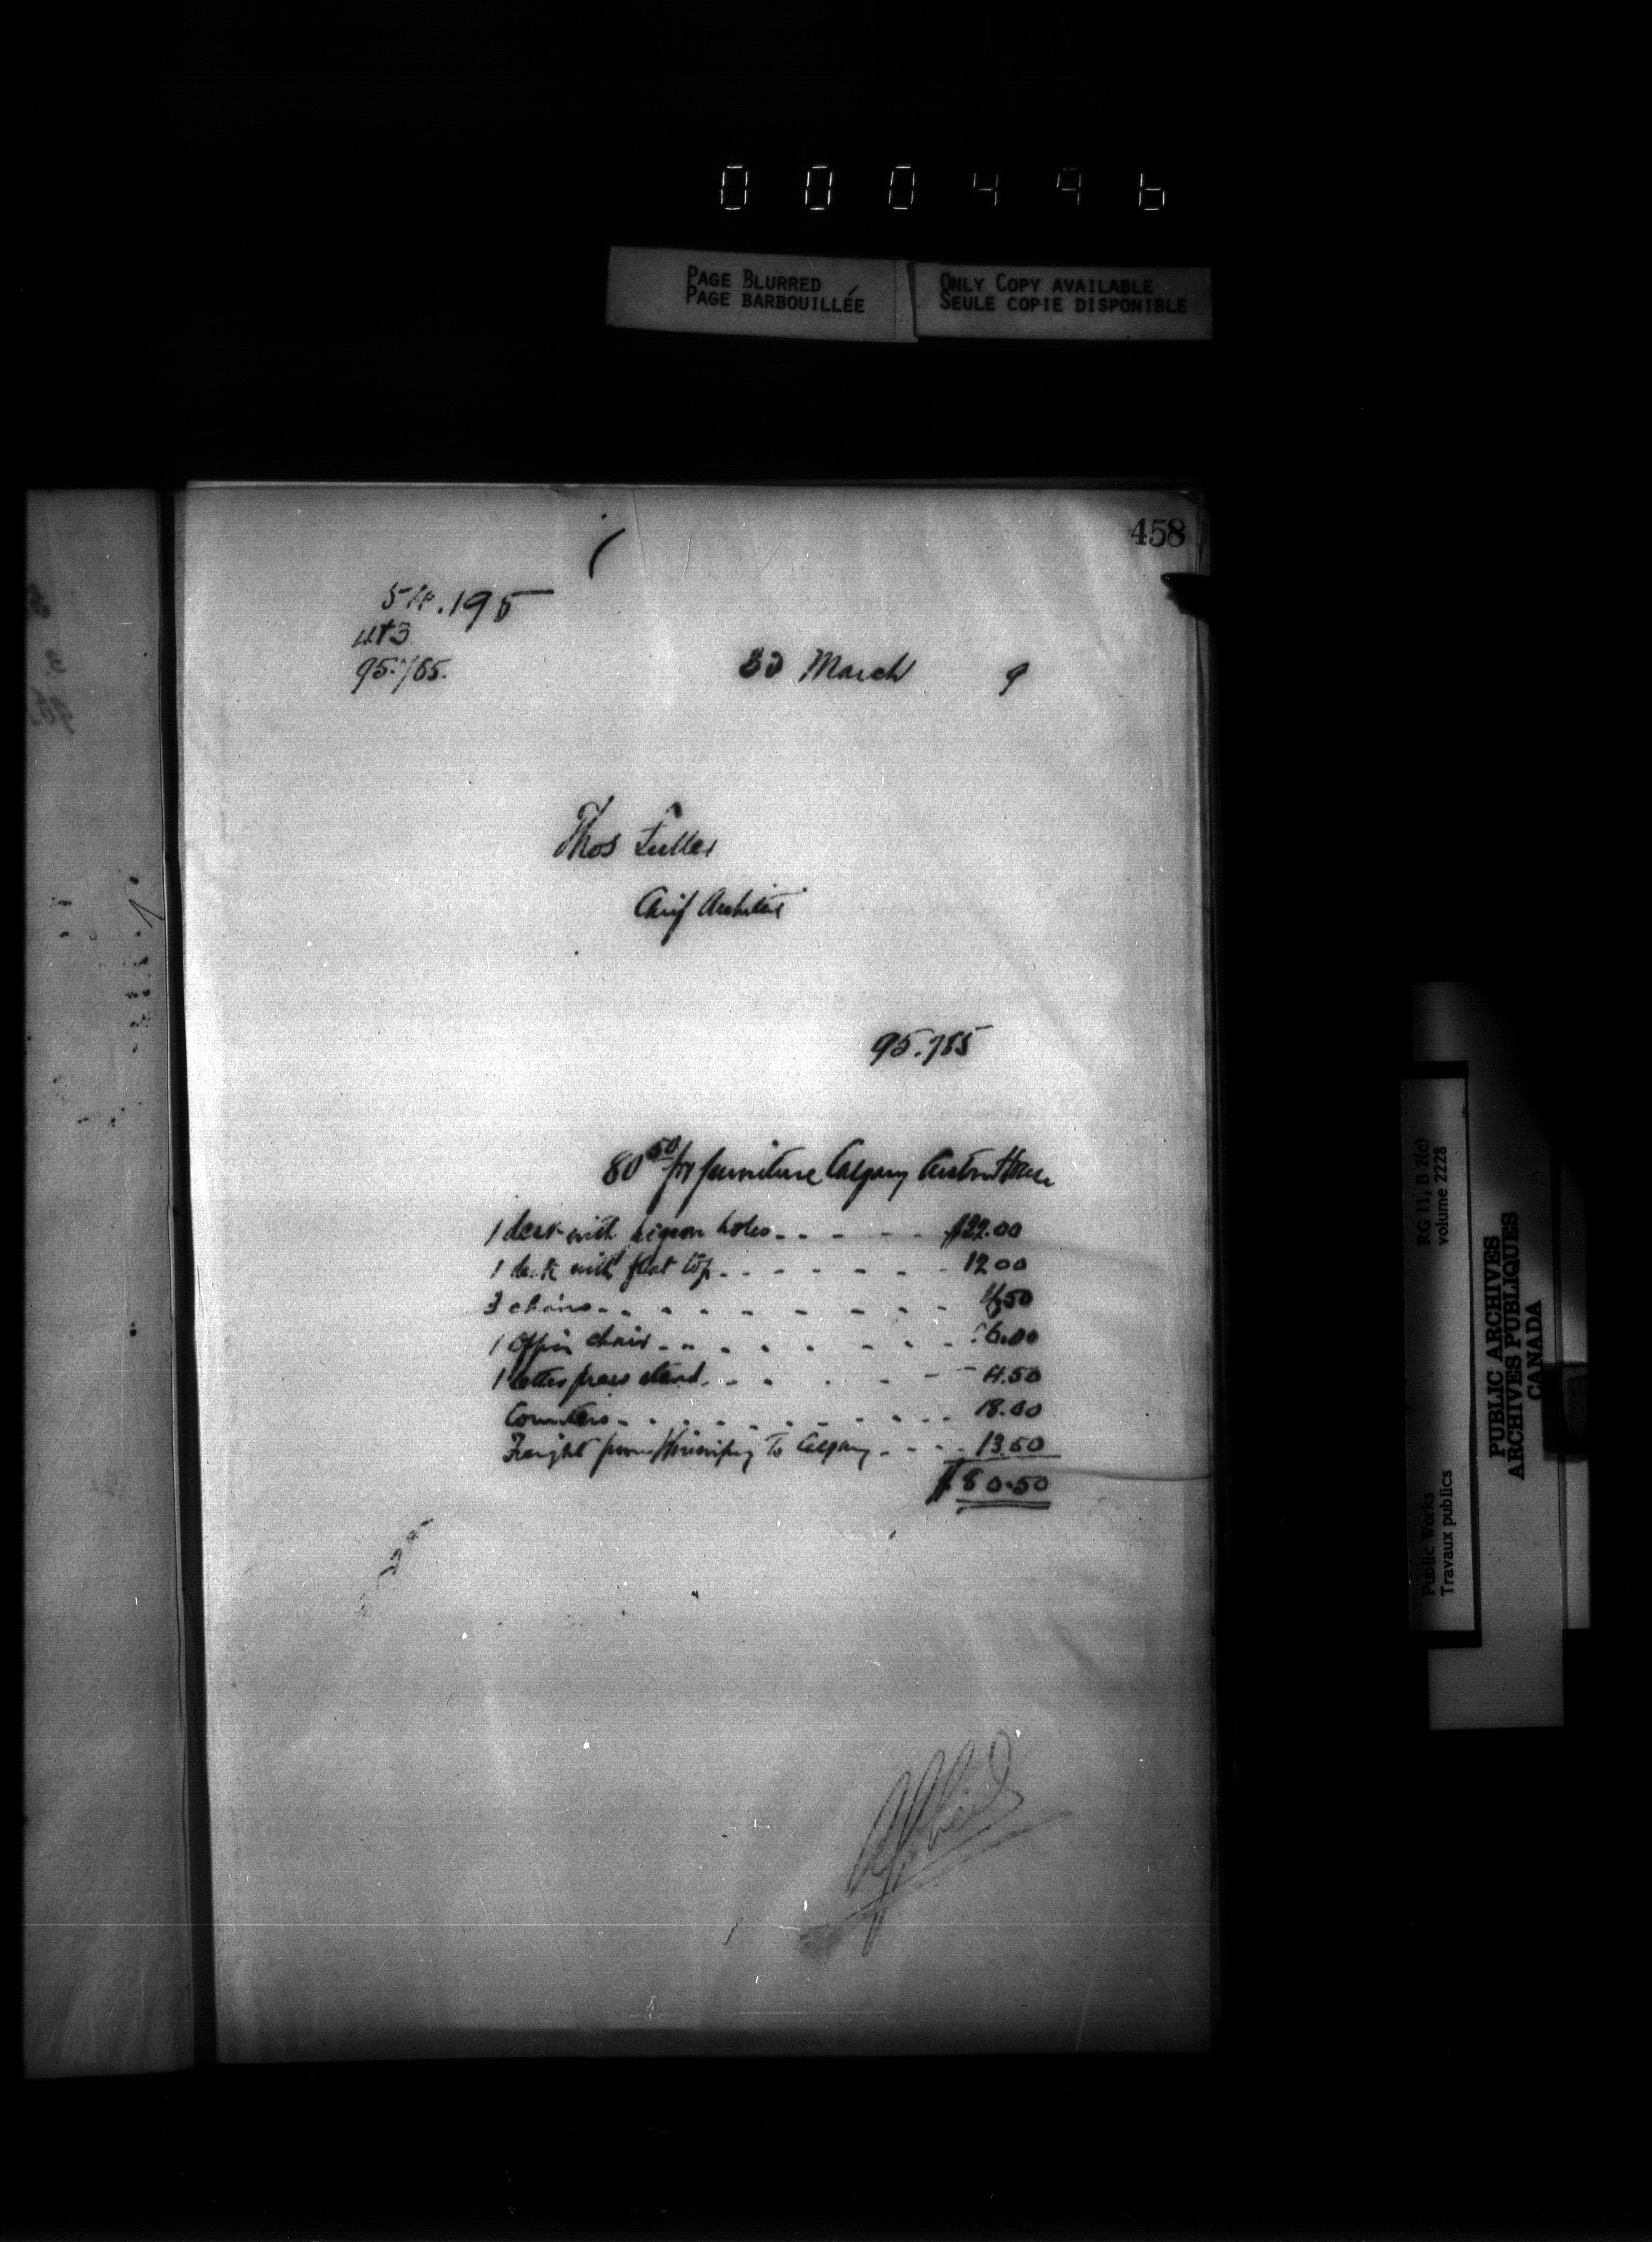 000496
PAGE BLURRED
PAGE BARBOUILLÉE
ONLY COPY AVAILABLE
SEULE COPIE DISPONIBLE
458
195
4+3
95.785.
30 March 9
Thos Fuller
Chief Architect
95.785
80 50 for furniture Calgary Custom House
1 desk with pigeon holes - - - - - $22.00
1 desk with flat top - - - - - - - 12 00
3 chairs - - - - - - - - - 4.50
1 Office chair - - - - - - - - 6.00
1 letter press stand - - - - - - 4.50
Counters - - - - - - - - - - 18.00
Freight from Winnipeg to Calgary - - - - 13.50
$80.50
RG 11, B 2(c)
volume 2228
Public Works
Travaux publics
PUBLIC ARCHIVES
ARCHIVES PUBLIQUES
CANADA